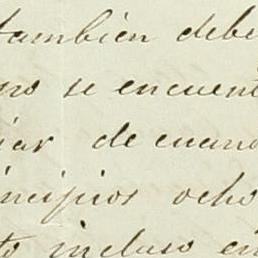 tambien debe
no se encuent
iar de cuand
incipios ocho
to incluso en